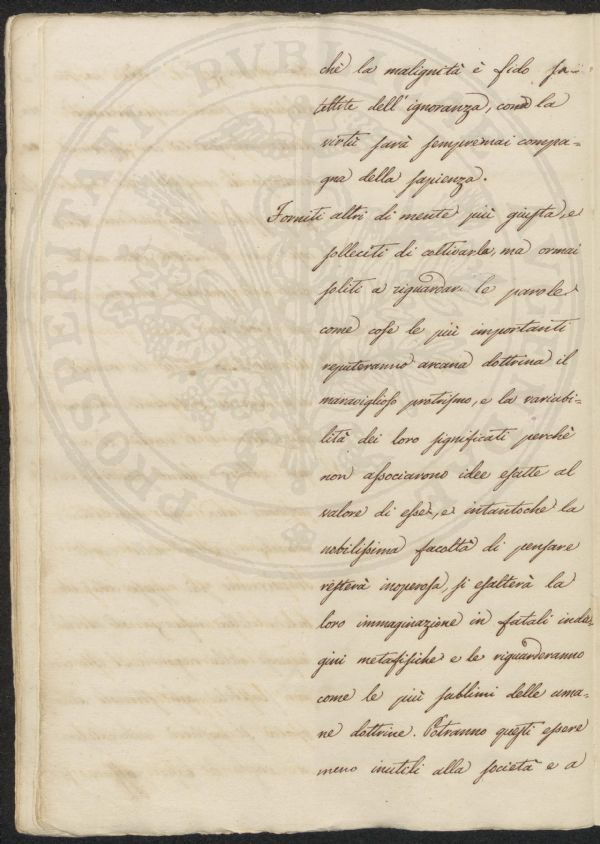 chè la malignità è fido sa-
tellite dell'ignoranza, come la
virtù sarà sempremai compa-
gna della sapienza.
Forniti altri di mente più giusta, e
solleciti di coltivarla, ma ormai
soliti a riguardar le parole
come cose le più importanti
reputeranno arcana dottrina il
maraviglioso protrismo, e la variabi-
lità dei loro significati perchè
non associarono idee esatte al
valore di esse, e intantoche la
nobilissima facoltà di pensare
resterà inoperosa, si esalterà la
loro immaginazione in fatali inda-
gini metafisiche e le riguarderanno
come le più sublimi delle uma-
ne dottrine. Potranno questi essere
meno inutili alla società e a
PROSPERITATI PUBLICAE